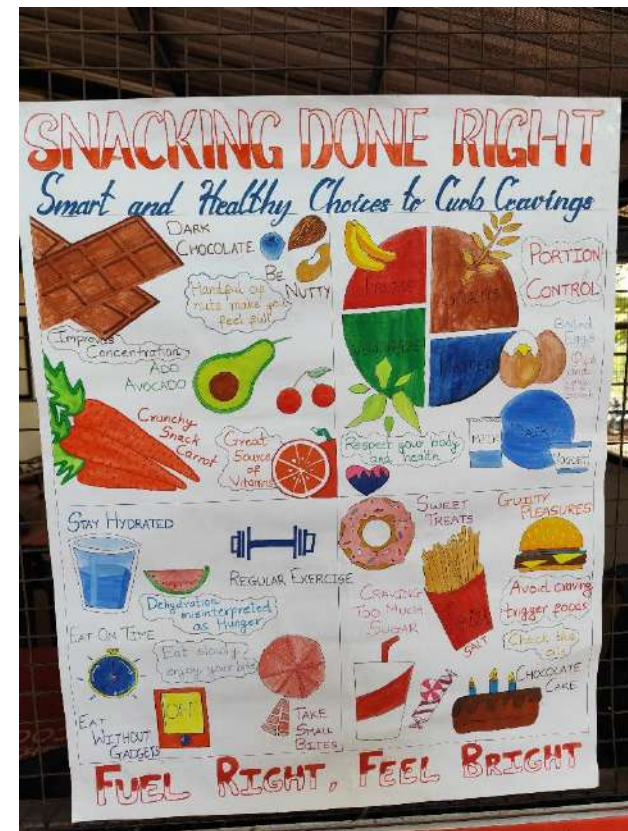 SNACKING DONE RIGHT
Smart and Healthy Choices to Curb Cravings
DARK
CHOCOLATE
BE
NUTTY
Handful of
nuts make you
feel full
Improves
Concentration
ADD
AVOCADO
Crunchy
Snack
Carrot
Great
Source
of
Vitamins
FRUITS
GRAINS
PROTEIN
PORTION
CONTROL
Boiled
Eggs
MILK
DAIRY
YOGURT
Respect your body
and health
STAY HYDRATED
REGULAR EXERCISE
Dehydration
misinterpreted
as Hunger
EAT ON TIME
Eat slowly
enjoy your bite
OFF
EAT
WITHOUT
GADGETS
TAKE
SMALL
BITES
SWEET
TREATS
GUILTY
PLEASURES
CRAVING
TOO MUCH
SUGAR
SALT
Avoid craving
trigger foods
Check the
CHOCOLATE
CAKE
FUEL RIGHT, FEEL BRIGHT